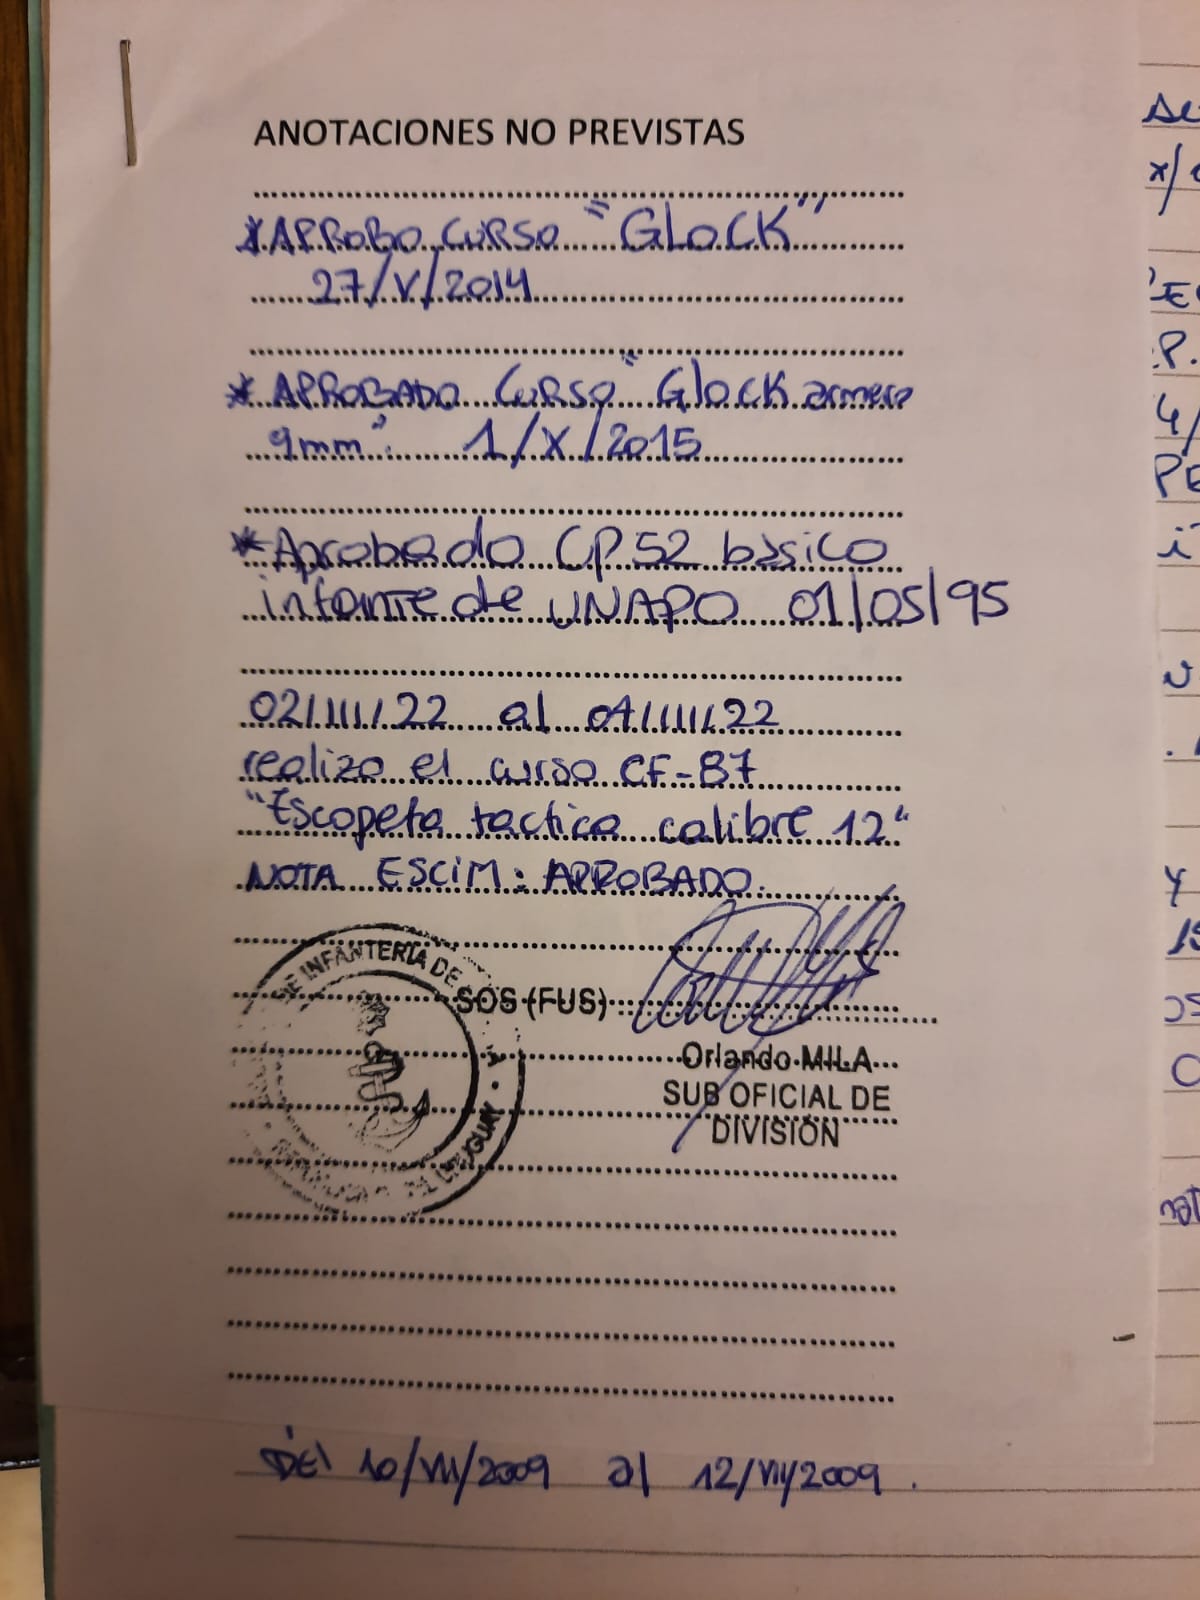 ANOTACIONES NO PREVISTAS
* APROBO CURSO "GLOCK"
27/V/2014
* APROBADO CURSO "GLOCK armero
9mm". 1/X/2015
* Aprobado CP52 básico
infante de UNAPO 01/05/95
02/III/22 al 04/III/22
realizo el curso CF-B7
"Escopeta tactica calibre 12"
NOTA ESCIM: APROBADO.
DE INFANTERIA DE
SOS (FUS)
Orlando MILA
SUB OFICIAL DE
DIVISIÓN
URUGUAY
DEl 10/VII/2009 al 12/VII/2009.